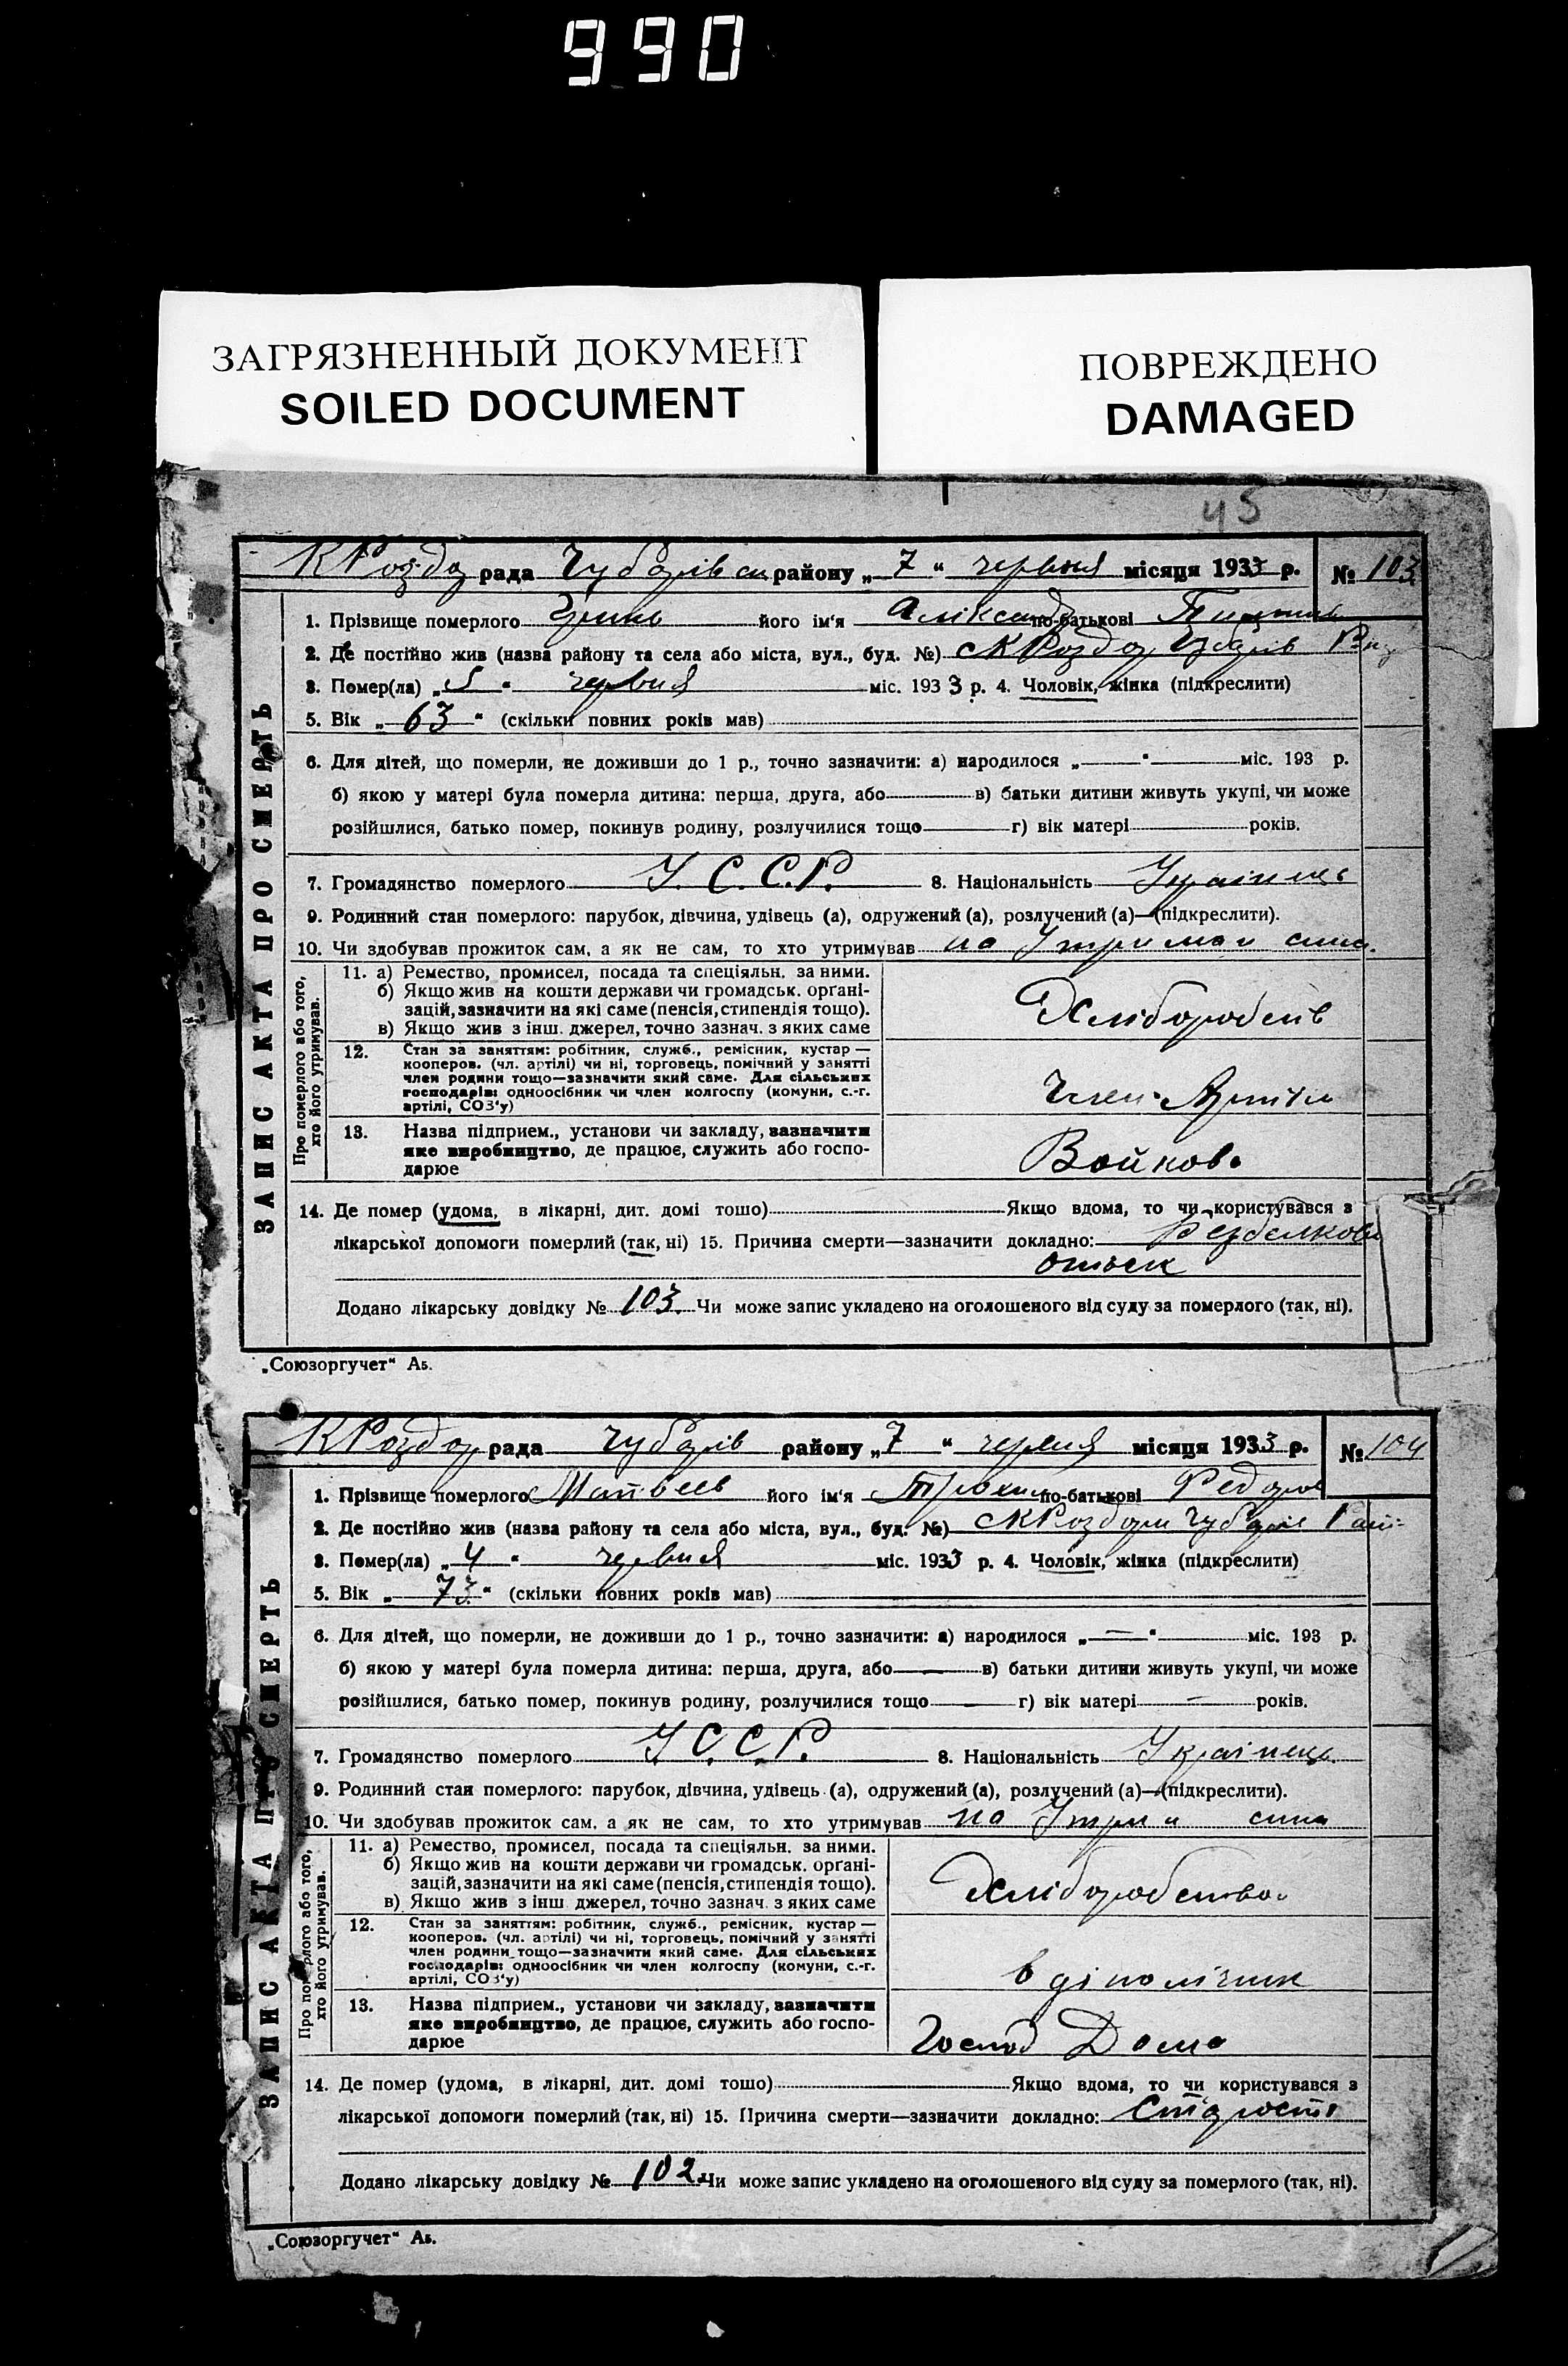 990
ЗАГРЯЗНЕННЫЙ ДОКУМЕНТ
SOILED DOCUMENT
ПОВРЕЖДЕНО
DAMAGED
45
КРоздор рада Чубарівськ району „7“ червня місяця 1933 р. № 103
1. Прізвище померлого його ім'я Аліксандр по-батькові
2. Де постійно жив (назва району та села або міста, вул., буд. №) с КРоздор Чубарів
3. Помер(ла) „5“ червня міс. 1933 р. 4. Чоловік, жінка (підкреслити)
5. Вік „63“ (скільки повних років мав)
6. Для дітей, що померли, не доживши до 1 р., точно зазначити: а) народилося „—“ — міс. 193 р.
б) якою у матері була померла дитина: перша, друга, або — в) батьки дитини живуть укупі, чи може
розійшлися, батько помер, покинув родину, розлучилися тощо — г) вік матері — років.
7. Громадянство померлого У.С.С.Р. 8. Національність Українець
9. Родинний стан померлого: парубок, дівчина, удівець (а), одружений (а), розлучений (а)—(підкреслити).
10. Чи здобував прожиток сам, а як не сам, то хто утримував на Утриман сина
ЗАПИС АКТА ПРО СМЕРТЬ
Про померлого або того, хто його утримував.
11. а) Ремество, промисел, посада та спеціяльн. за ними.
б) Якщо жив на кошти держави чи громадськ. орґані-
зацій, зазначити на які саме (пенсія, стипендія тощо).
в) Якщо жив з інш. джерел, точно зазнач. з яких саме
Хлібороб
12. Стан за заняттям: робітник, служб., ремісник, кустар —
кооперов. (чл. артілі) чи ні, торговець, помічний у занятті
член родини тощо—зазначити який саме. Для сільських
господарів: одноосібник чи член колгоспу (комуни, с.-г.
артілі, СОЗ'у)
Член Артіли
13. Назва підприєм., установи чи закладу, зазначити
яке виробництво, де працює, служить або госпо-
дарює
Войкова
14. Де помер (удома, в лікарні, дит. домі тощо) Якщо вдома, то чи користувався з
лікарської допомоги померлий (так, ні) 15. Причина смерти—зазначити докладно:
отьок
Додано лікарську довідку № 103. Чи може запис укладено на оголошеного від суду за померлого (так, ні).
„Союзоргучет“ Аь.
КРоздор рада Чубарів району „7“ червня місяця 1933 р. № 104
1. Прізвище померлого Матвеев його ім'я по-батькові Федоров
2. Де постійно жив (назва району та села або міста, вул., буд. №) с КРоздори Чубарів Рай
3. Помер(ла) „4“ червня міс. 1933 р. 4. Чоловік, жінка (підкреслити)
5. Вік „73“ (скільки повних років мав)
6. Для дітей, що померли, не доживши до 1 р., точно зазначити: а) народилося „—“ міс. 193 р.
б) якою у матері була померла дитина: перша, друга, або — в) батьки дитини живуть укупі, чи може
розійшлися, батько помер, покинув родину, розлучилися тощо — г) вік матері — років.
7. Громадянство померлого УС.С.Р. 8. Національність Українець
9. Родинний стан померлого: парубок, дівчина, удівець (а), одружений (а), розлучений (а)—(підкреслити).
10. Чи здобував прожиток сам, а як не сам, то хто утримував на Утрим сина
ЗАПИС АКТА ПРО СМЕРТЬ
Про померлого або того, хто його утримував.
11. а) Ремество, промисел, посада та спеціяльн. за ними.
б) Якщо жив на кошти держави чи громадськ. орґані-
зацій, зазначити на які саме (пенсія, стипендія тощо).
в) Якщо жив з інш джерел, точно зазнач. з яких саме
Хліборобство
12. Стан за заняттям: робітник, служб., ремісник, кустар —
кооперов. (чл. артілі) чи ні, торговець, помічний у занятті
член родини тощо—зазначити який саме. Для сільських
господарів: одноосібник чи член колгоспу (комуни, с.-г.
артілі, СОЗ'у)
13. Назва підприєм., установи чи закладу, зазначити
яке виробництво, де працює, служить або госпо-
дарює
Господ Дома
14. Де помер (удома, в лікарні, дит. домі тощо) Якщо вдома, то чи користувався з
лікарської допомоги померлий (так, ні) 15. Причина смерти—зазначити докладно: Старость
Додано лікарську довідку № 102 Чи може запис укладено на оголошеного від суду за померлого (так, ні).
„Союзоргучет“ Аь.